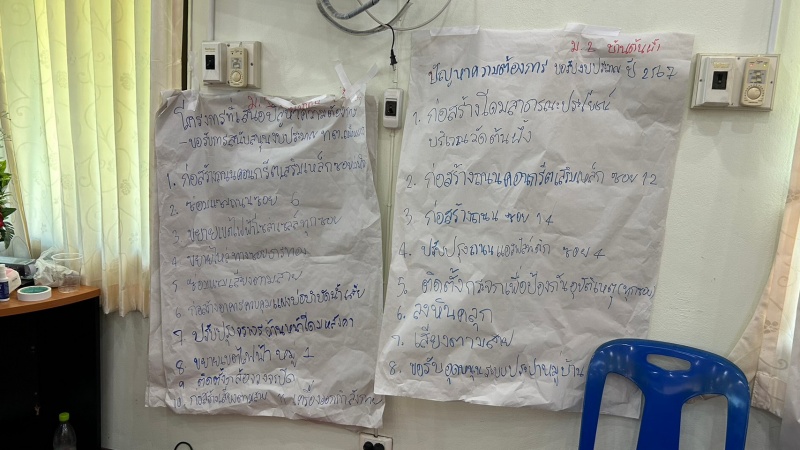 โครงการที่เสนอปัญหาความต้องการ
- ขอรับการสนับสนุนงบประมาณ
1. ก่อสร้างถนนคอนกรีตเสริมเหล็ก
2. ซ่อมแซมถนนซอย 6
3. ขยายเขตไฟฟ้า ทุกซอย
4. ขยาย
5. ซ่อมแซมเสียงตามสาย
6. ก่อสร้างอาคารคลุม บ่อบำบัดน้ำเสีย
7. ปรับปรุง โดม หลังคา
8 ขยายเขตไฟฟ้า หมู่ 1
9 ติดตั้งกล้องวงจรปิด
10. เครื่องออกกำลังกาย
ม. 2 บ้านต้นผึ้ง
ปัญหาความต้องการ ขอรับงบประมาณ ปี 2567
1. ก่อสร้างโดมสาธารณะประโยชน์
บริเวณวัดต้นผึ้ง
2. ก่อสร้างถนนคอนกรีตเสริมเหล็ก ซอย 12
3. ก่อสร้างถนน ซอย 14
4. ปรับปรุงถนนแอสฟัลติก ซอย 4
5. ติดตั้งกระจกเพื่อป้องกันอุบัติเหตุ (ทุกซอย)
6. ลงหินคลุก
7. เสียงตามสาย
8. ขอรับอุดหนุนระบบประปาหมู่บ้าน